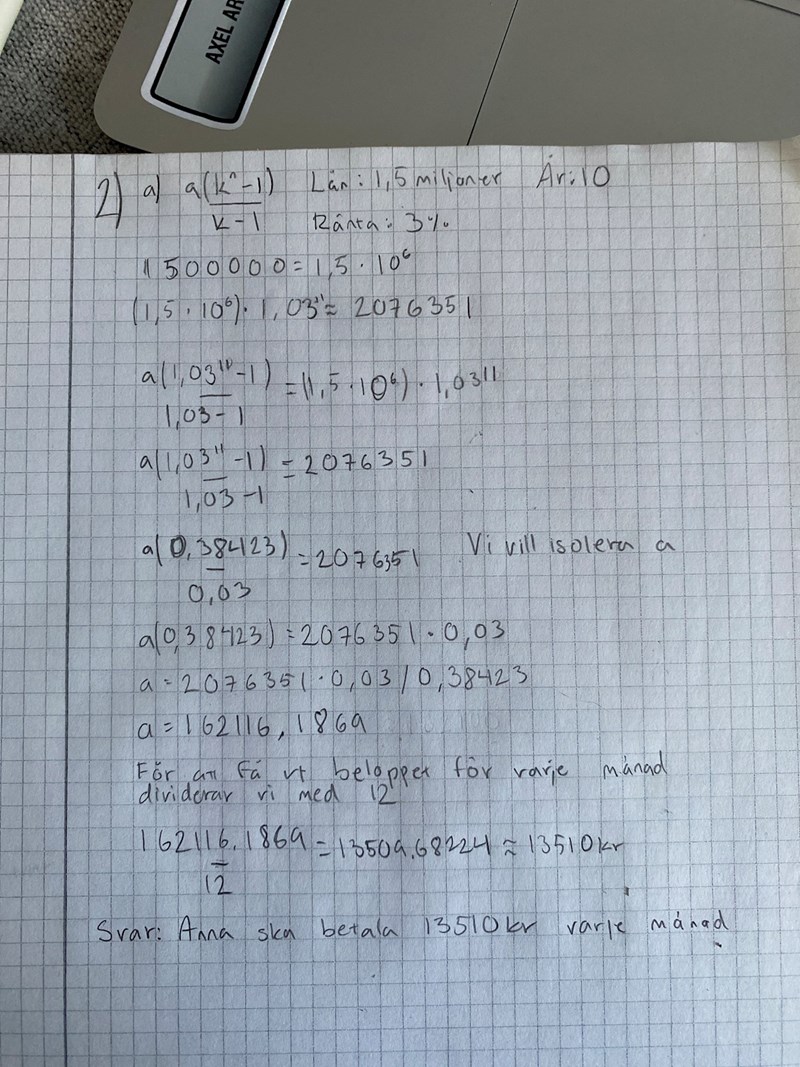 AXEL AR
2) a) a(kⁿ-1) Lån: 1,5 miljoner År: 10
k-1 Ränta: 3%
1500000 = 1,5 · 10⁶
(1,5 · 10⁶) · 1,03¹¹ ≈ 2076351
a(1,03¹¹-1) = (1,5 · 10⁶) · 1,03¹¹
1,03-1
a(1,03¹¹-1) = 2076351
1,03-1
a(0,38423) = 2076351 Vi vill isolera a
0,03
a(0,38423) = 2076351 · 0,03
a = 2076351 · 0,03 / 0,38423
a = 162116,1869
För att få ut beloppet för varje månad
dividerar vi med 12
162116,1869 = 13509.68224 ≈ 13510 kr
12
Svar: Anna ska betala 13510 kr varje månad